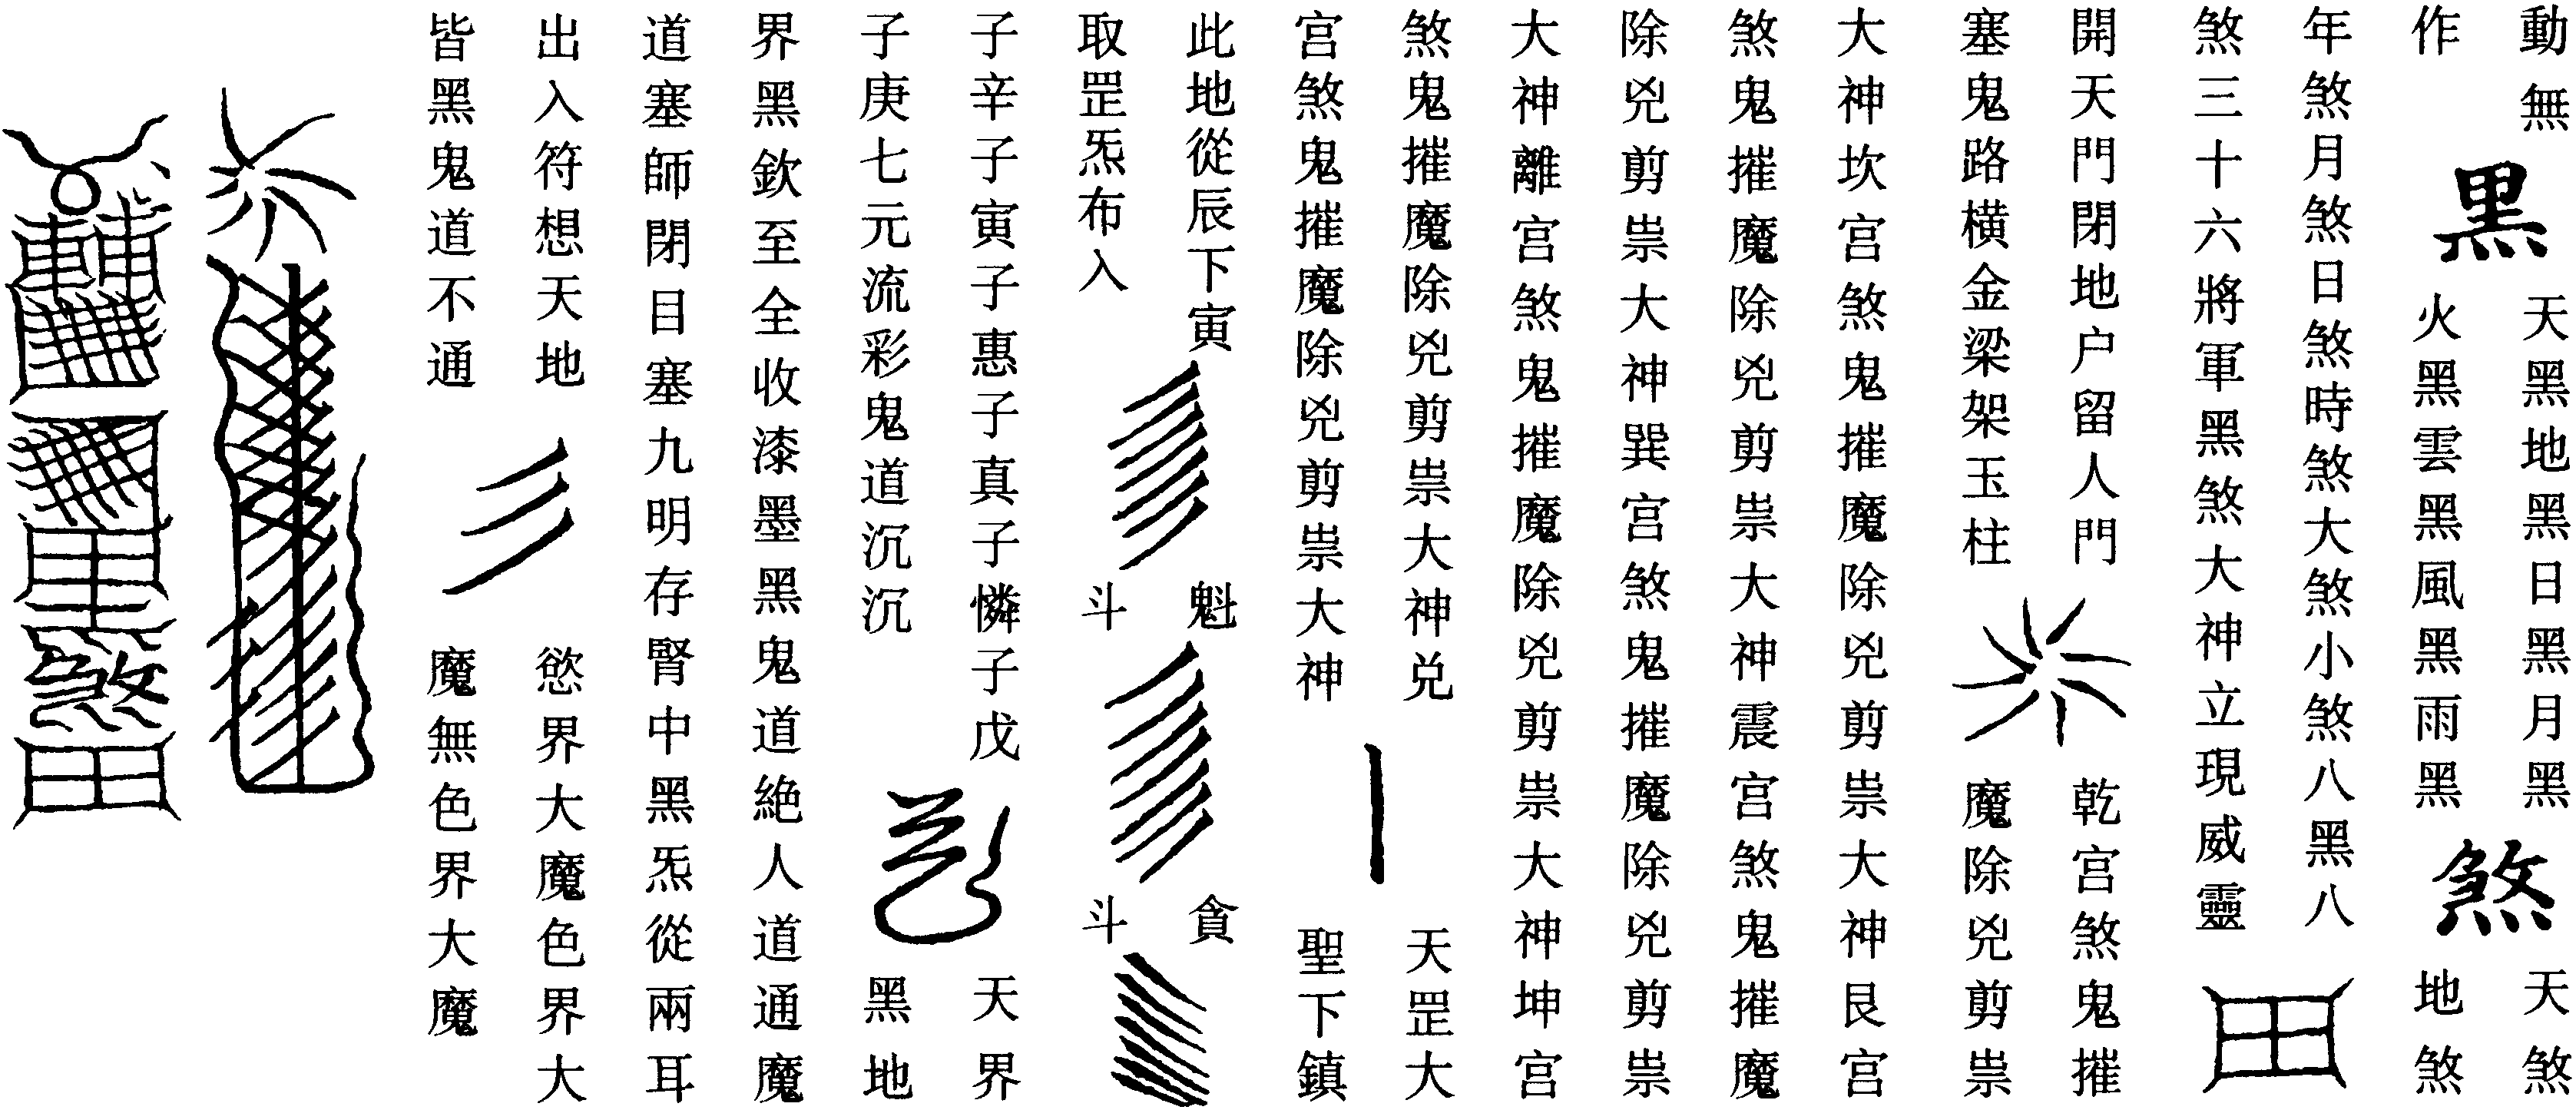 動無
作
黑
天黑地黑日黑月黑
火黑雲黑風黑雨黑
煞
天煞
地煞
年煞月煞日煞時煞大煞小煞八黑八
煞三十六將軍黑煞大神立現威靈
開天門閉地户留人門
塞鬼路横金梁架玉柱
乾宫煞鬼摧
魔除兇剪祟
大神坎宫煞鬼摧魔除兇剪祟大神艮宫
煞鬼摧魔除兇剪祟大神震宫煞鬼摧魔
除兇剪祟大神巽宫煞鬼摧魔除兇剪祟
大神離宫煞鬼摧魔除兇剪祟大神坤宫
煞鬼摧魔除兇剪祟大神兑
宫煞鬼摧魔除兇剪祟大神
天罡大
聖下鎮
此地從辰下寅
取罡炁布入
魁
斗
貪
斗
子辛子寅子惠子真子憐子戊
子庚七元流彩鬼道沉沉
天界
黑地
界黑欽至全收漆墨黑鬼道絶人道通魔
道塞師閉目塞九明存腎中黑炁從兩耳
出入符想天地
皆黑鬼道不通
慾界大魔色界大
魔無色界大魔